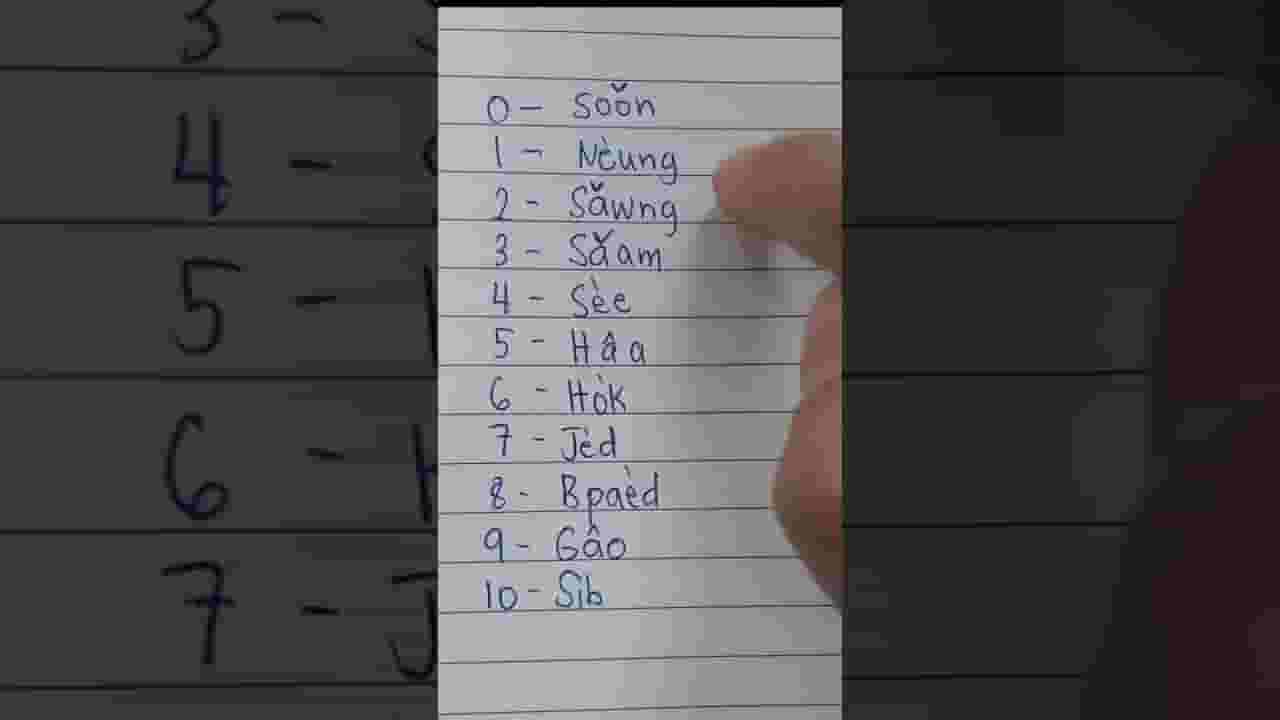 0 - Soǒn
1 - Nèung
2 - Sǎwng
3 - Sǎam
4 - Sèe
5 - Hâa
6 - Hòk
7 - Jèd
8 - Bpaèd
9 - Gâo
10 - Sìb
3 -
4 -
5 -
6 -
7 - J